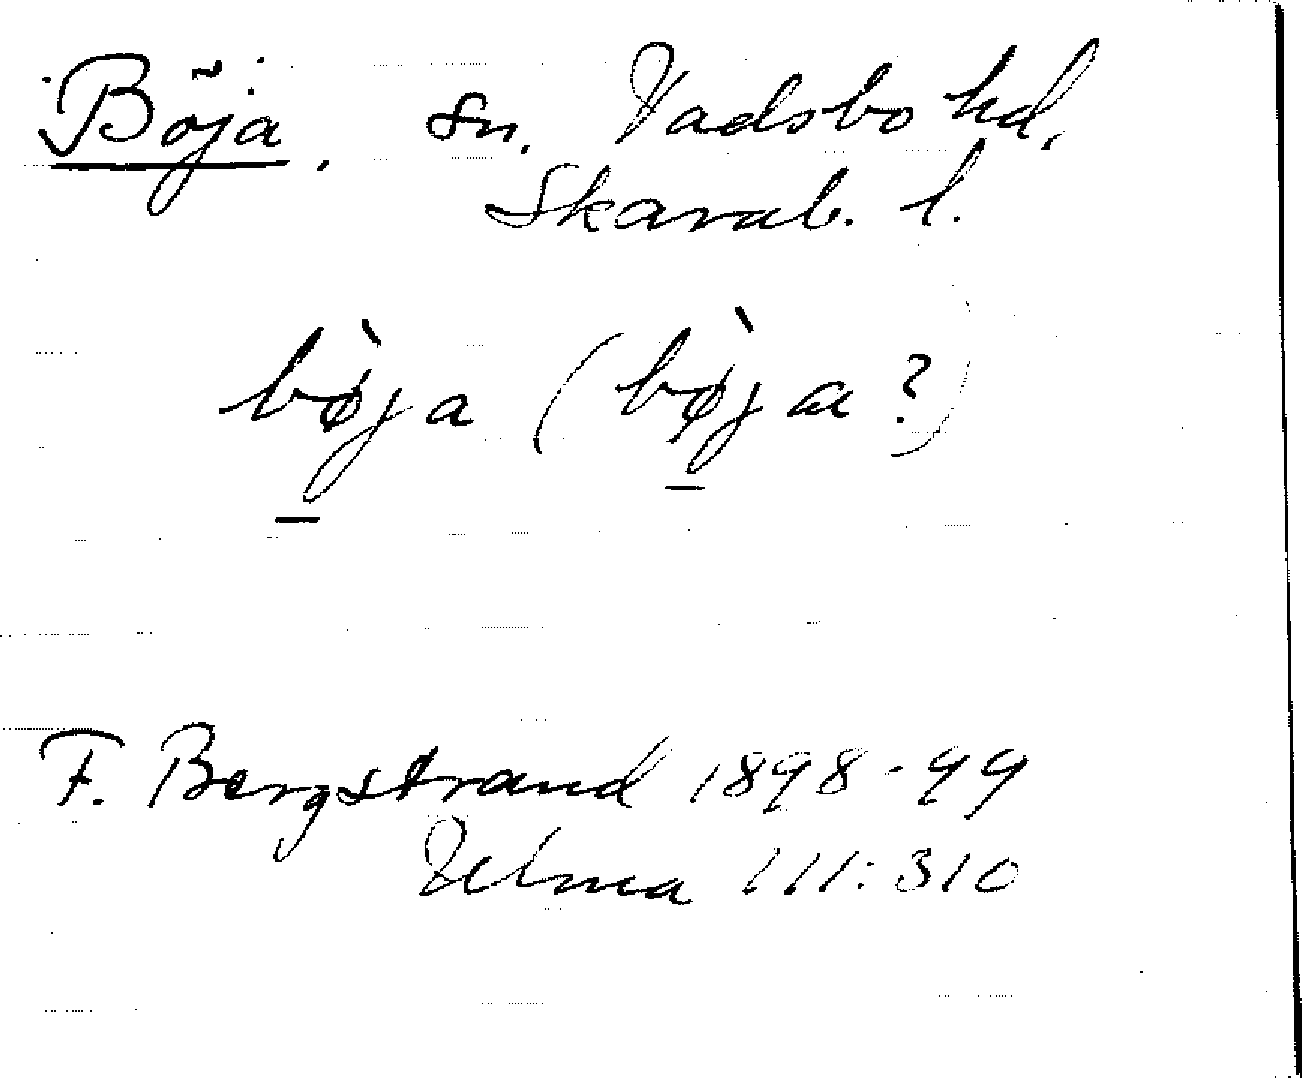 Böja, sn. Vadsbo hd,
Skarab. l.
bø̀ja (bø̀ja?)
F. Bergstrand 1898-99
Ulma 111:310